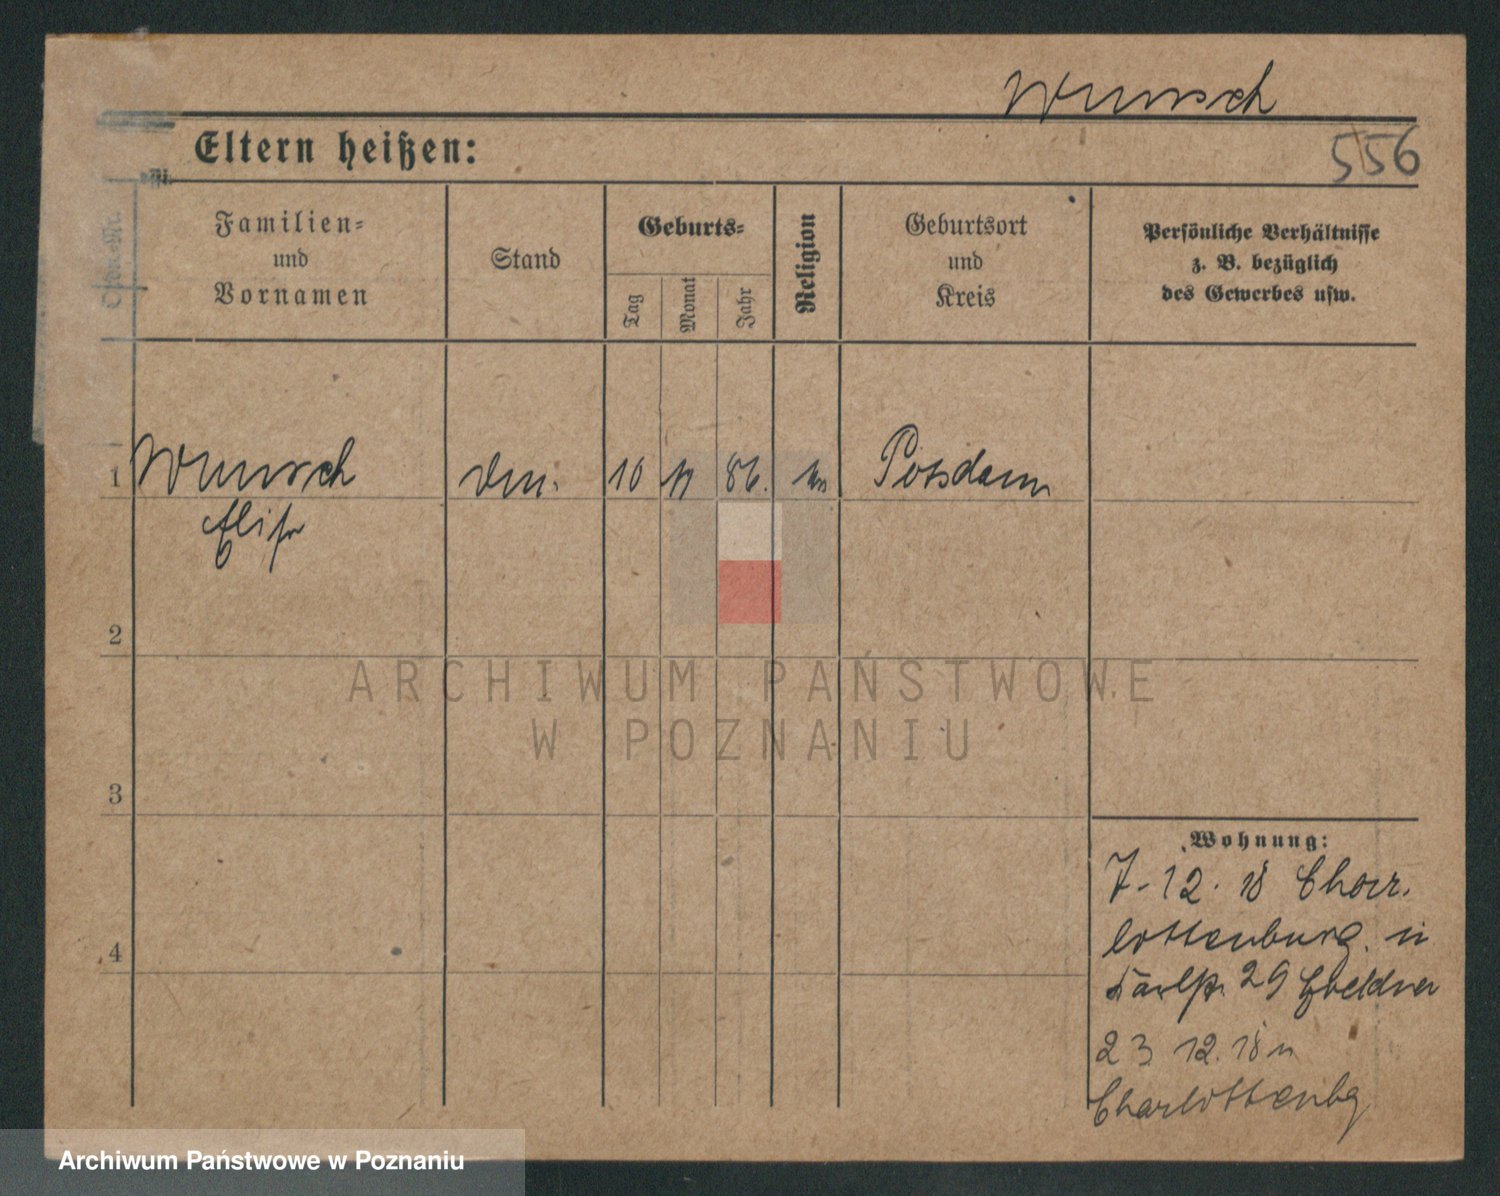 Wunsch
556
Eltern heißen:
Familien=
und
Vornamen
Stand
Geburts=
Tag
Monat
Jahr
Religion
Geburtsort
und
Kreis
Persönliche Verhältnisse
z. B. bezüglich
des Gewerbes usw.
1 Wunsch 10 86. Potsdam
2
3
4
Wohnung:
7-12. 18 Char.
lottenburg.
29
23 12. 18 n
Charlottenbg
ARCHIWUM PAŃSTWOWE
W POZNANIU
Archiwum Państwowe w Poznaniu